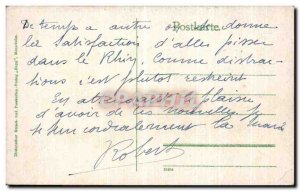 De temps a autre on se donne
Postkarte.
les satisfactions d'aller pisser
dans le Rhin, comme distrac-
tions c'est plutot restreint
En attendant le plaisir
d'avoir de tes nouvelles je
te serre cordialement la main
Robert